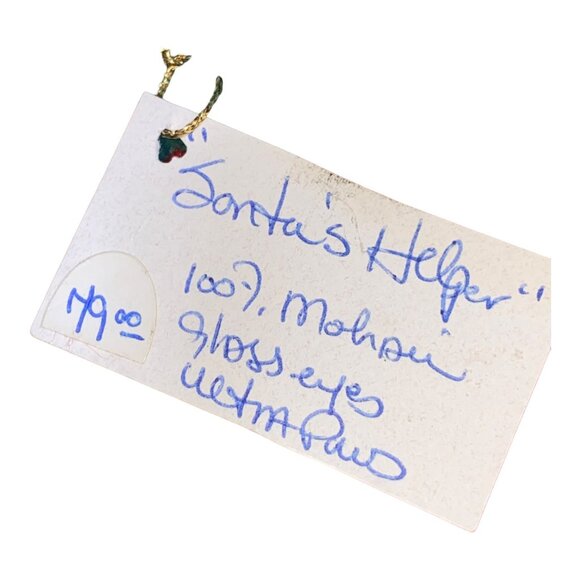 "Santa's Helper"
100% Mohair
glass eyes
ultra
79.00